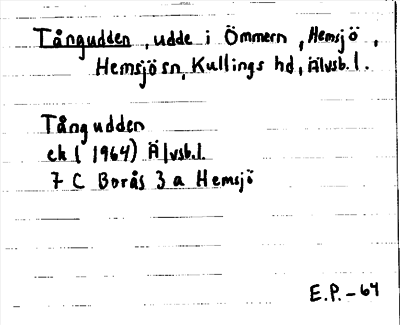 Tångudden, udde i Ömmern, Hemsjö,
Hemsjö sn, Kullings hd, Älvsb. l.
Tångudden
ek (1964) Älvsb. l.
7 C Borås 3 a Hemsjö
E.P. - 64